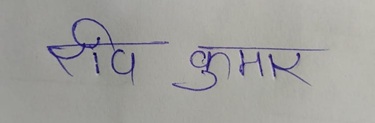 शिव कुमार